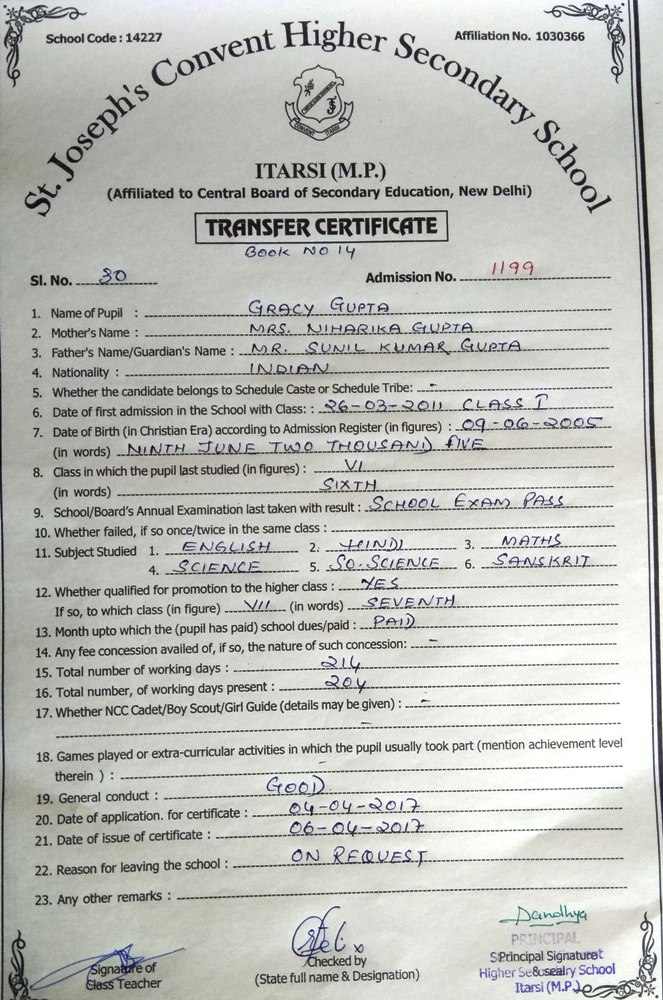 School Code : 14227
Affiliation No. 1030366
St. Joseph's Convent Higher Secondary School
CONVENT ITARSI
ITARSI (M.P.)
(Affiliated to Central Board of Secondary Education, New Delhi)
TRANSFER CERTIFICATE
BOOK NO 14
Sl. No. 30
Admission No. 1199
1. Name of Pupil : GRACY GUPTA
2. Mother's Name : MRS. NIHARIKA GUPTA
3. Father's Name/Guardian's Name : MR. SUNIL KUMAR GUPTA
4. Nationality : INDIAN
5. Whether the candidate belongs to Schedule Caste or Schedule Tribe: -
6. Date of first admission in the School with Class: : 26-03-2011 CLASS I
7. Date of Birth (in Christian Era) according to Admission Register (in figures) : 09-06-2005
(in words) NINTH JUNE TWO THOUSAND FIVE
8. Class in which the pupil last studied (in figures) : VI
(in words) SIXTH
9. School/Board's Annual Examination last taken with result : SCHOOL EXAM PASS
10. Whether failed, if so once/twice in the same class :
11. Subject Studied 1. ENGLISH 2. HINDI 3. MATHS
4. SCIENCE 5. SO. SCIENCE 6. SANSKRIT
12. Whether qualified for promotion to the higher class : YES
If so, to which class (in figure) VII (in words) SEVENTH
13. Month upto which the (pupil has paid) school dues/paid : PAID
14. Any fee concession availed of, if so, the nature of such concession: -
15. Total number of working days : 214
16. Total number, of working days present : 204
17. Whether NCC Cadet/Boy Scout/Girl Guide (details may be given) : -
-
18. Games played or extra-curricular activities in which the pupil usually took part (mention achievement level
therein ) : -
19. General conduct : GOOD
20. Date of application. for certificate : 04-04-2017
21. Date of issue of certificate : 06-04-2017
22. Reason for leaving the school : ON REQUEST
23. Any other remarks :
Signature of
Class Teacher
Checked by
(State full name & Designation)
PRINCIPAL
Principal Signature
& seal
Higher Secondary School
Itarsi (M.P.)